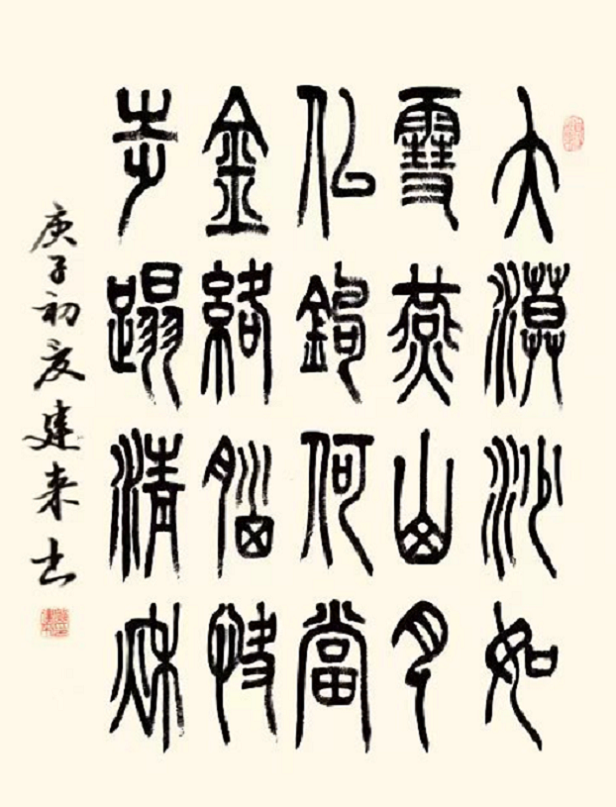 大漠沙如
雪燕山月
似鉤何當
金絡腦快
步蹋清秋
庚子初夏建来书